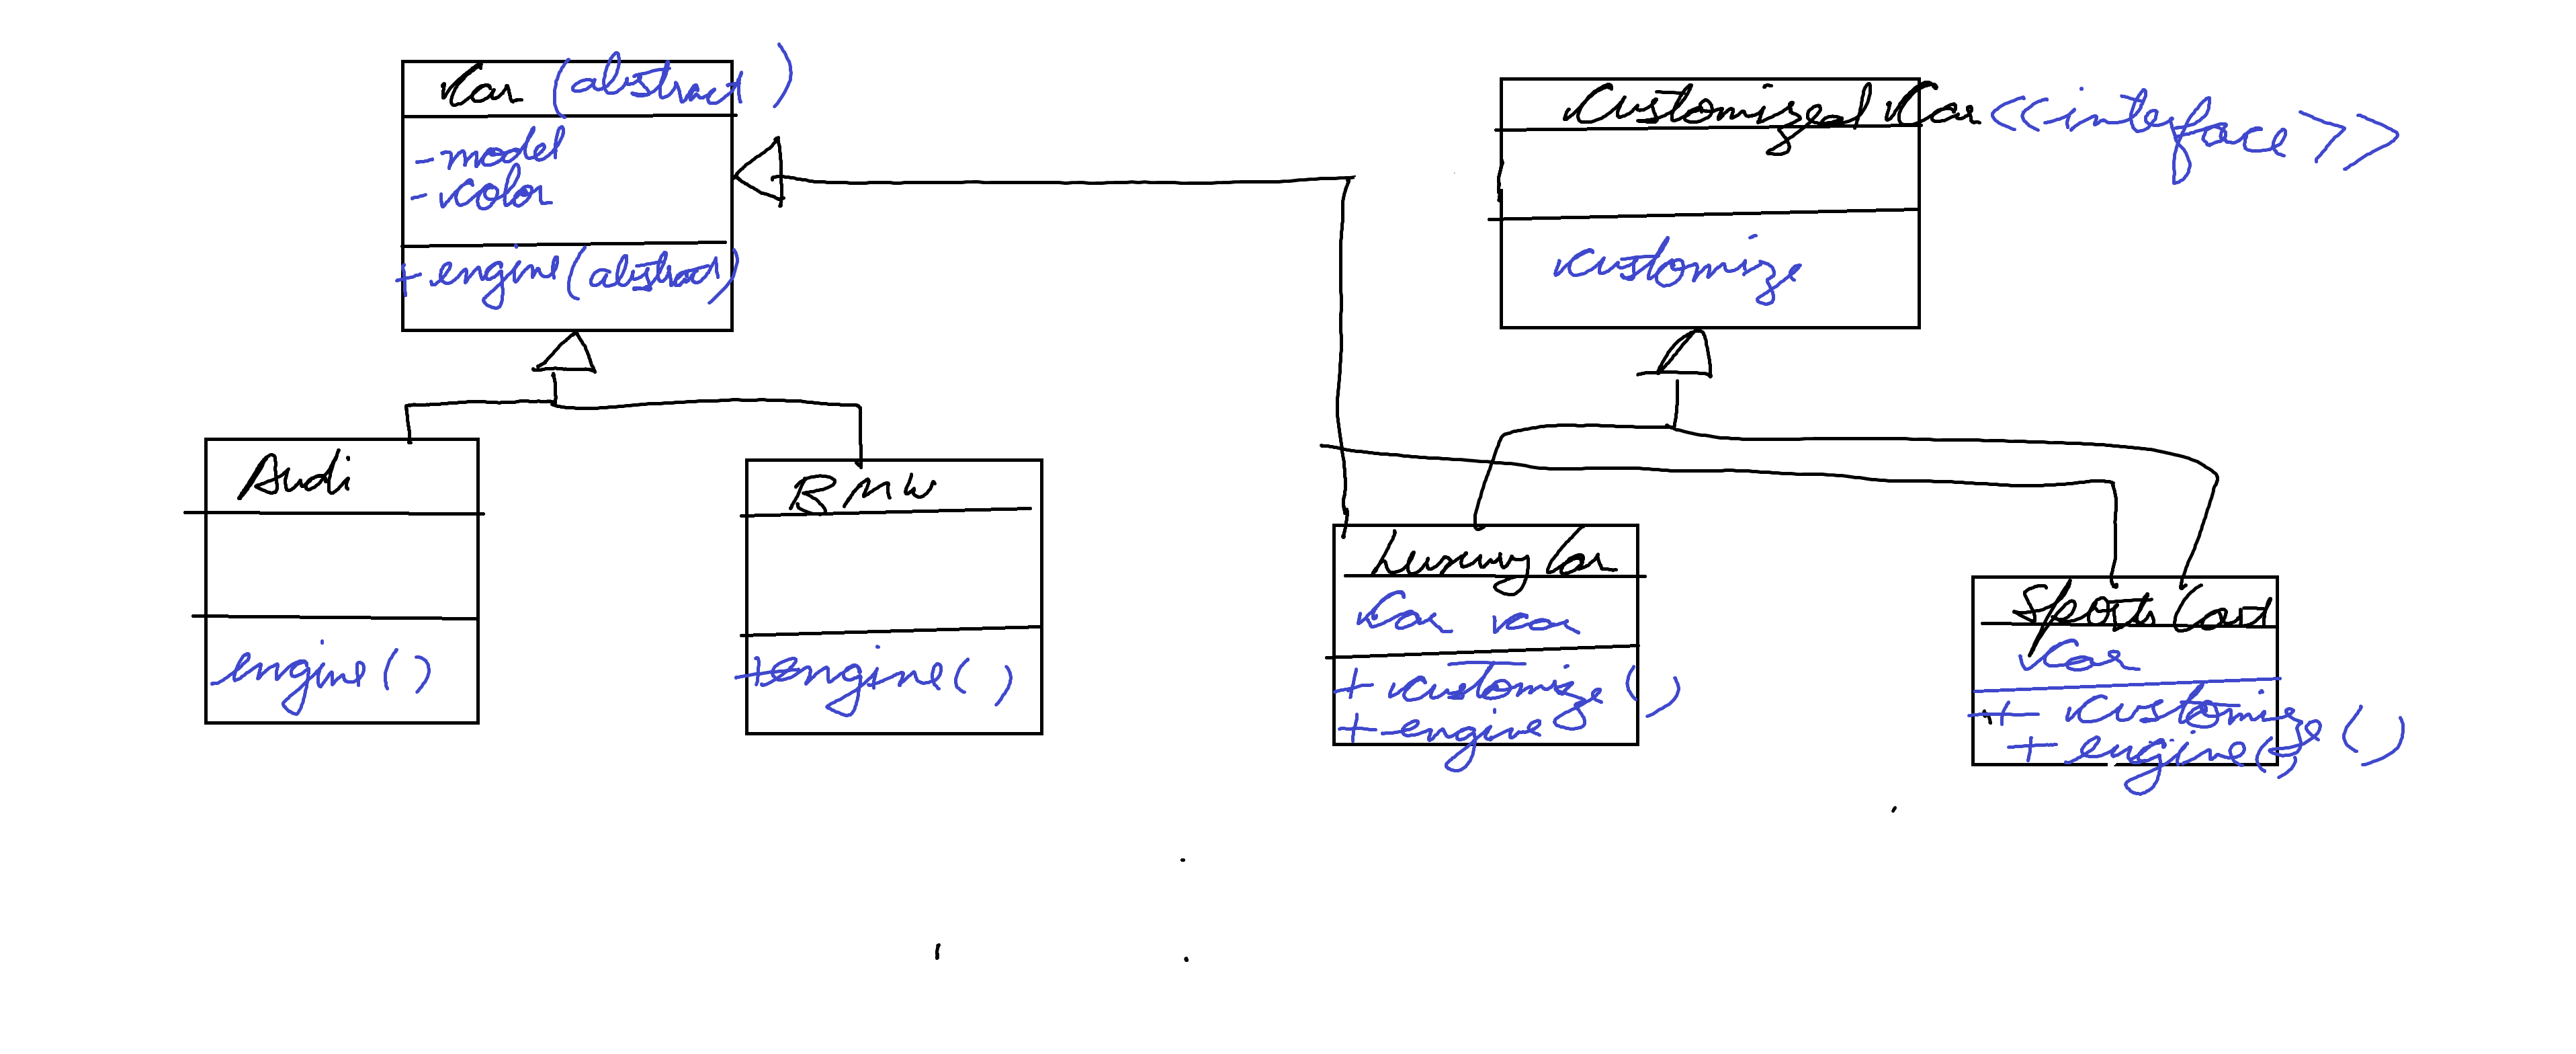 Car (abstract)
- model
- color
+ engine (abstract)
Customized Car <<interface>>
customize
Audi
engine ()
BMW
+engine ()
Luxury Car
Car car
+ customize ()
+ engine
Sports Card
Car
+ customize ()
+ engine()